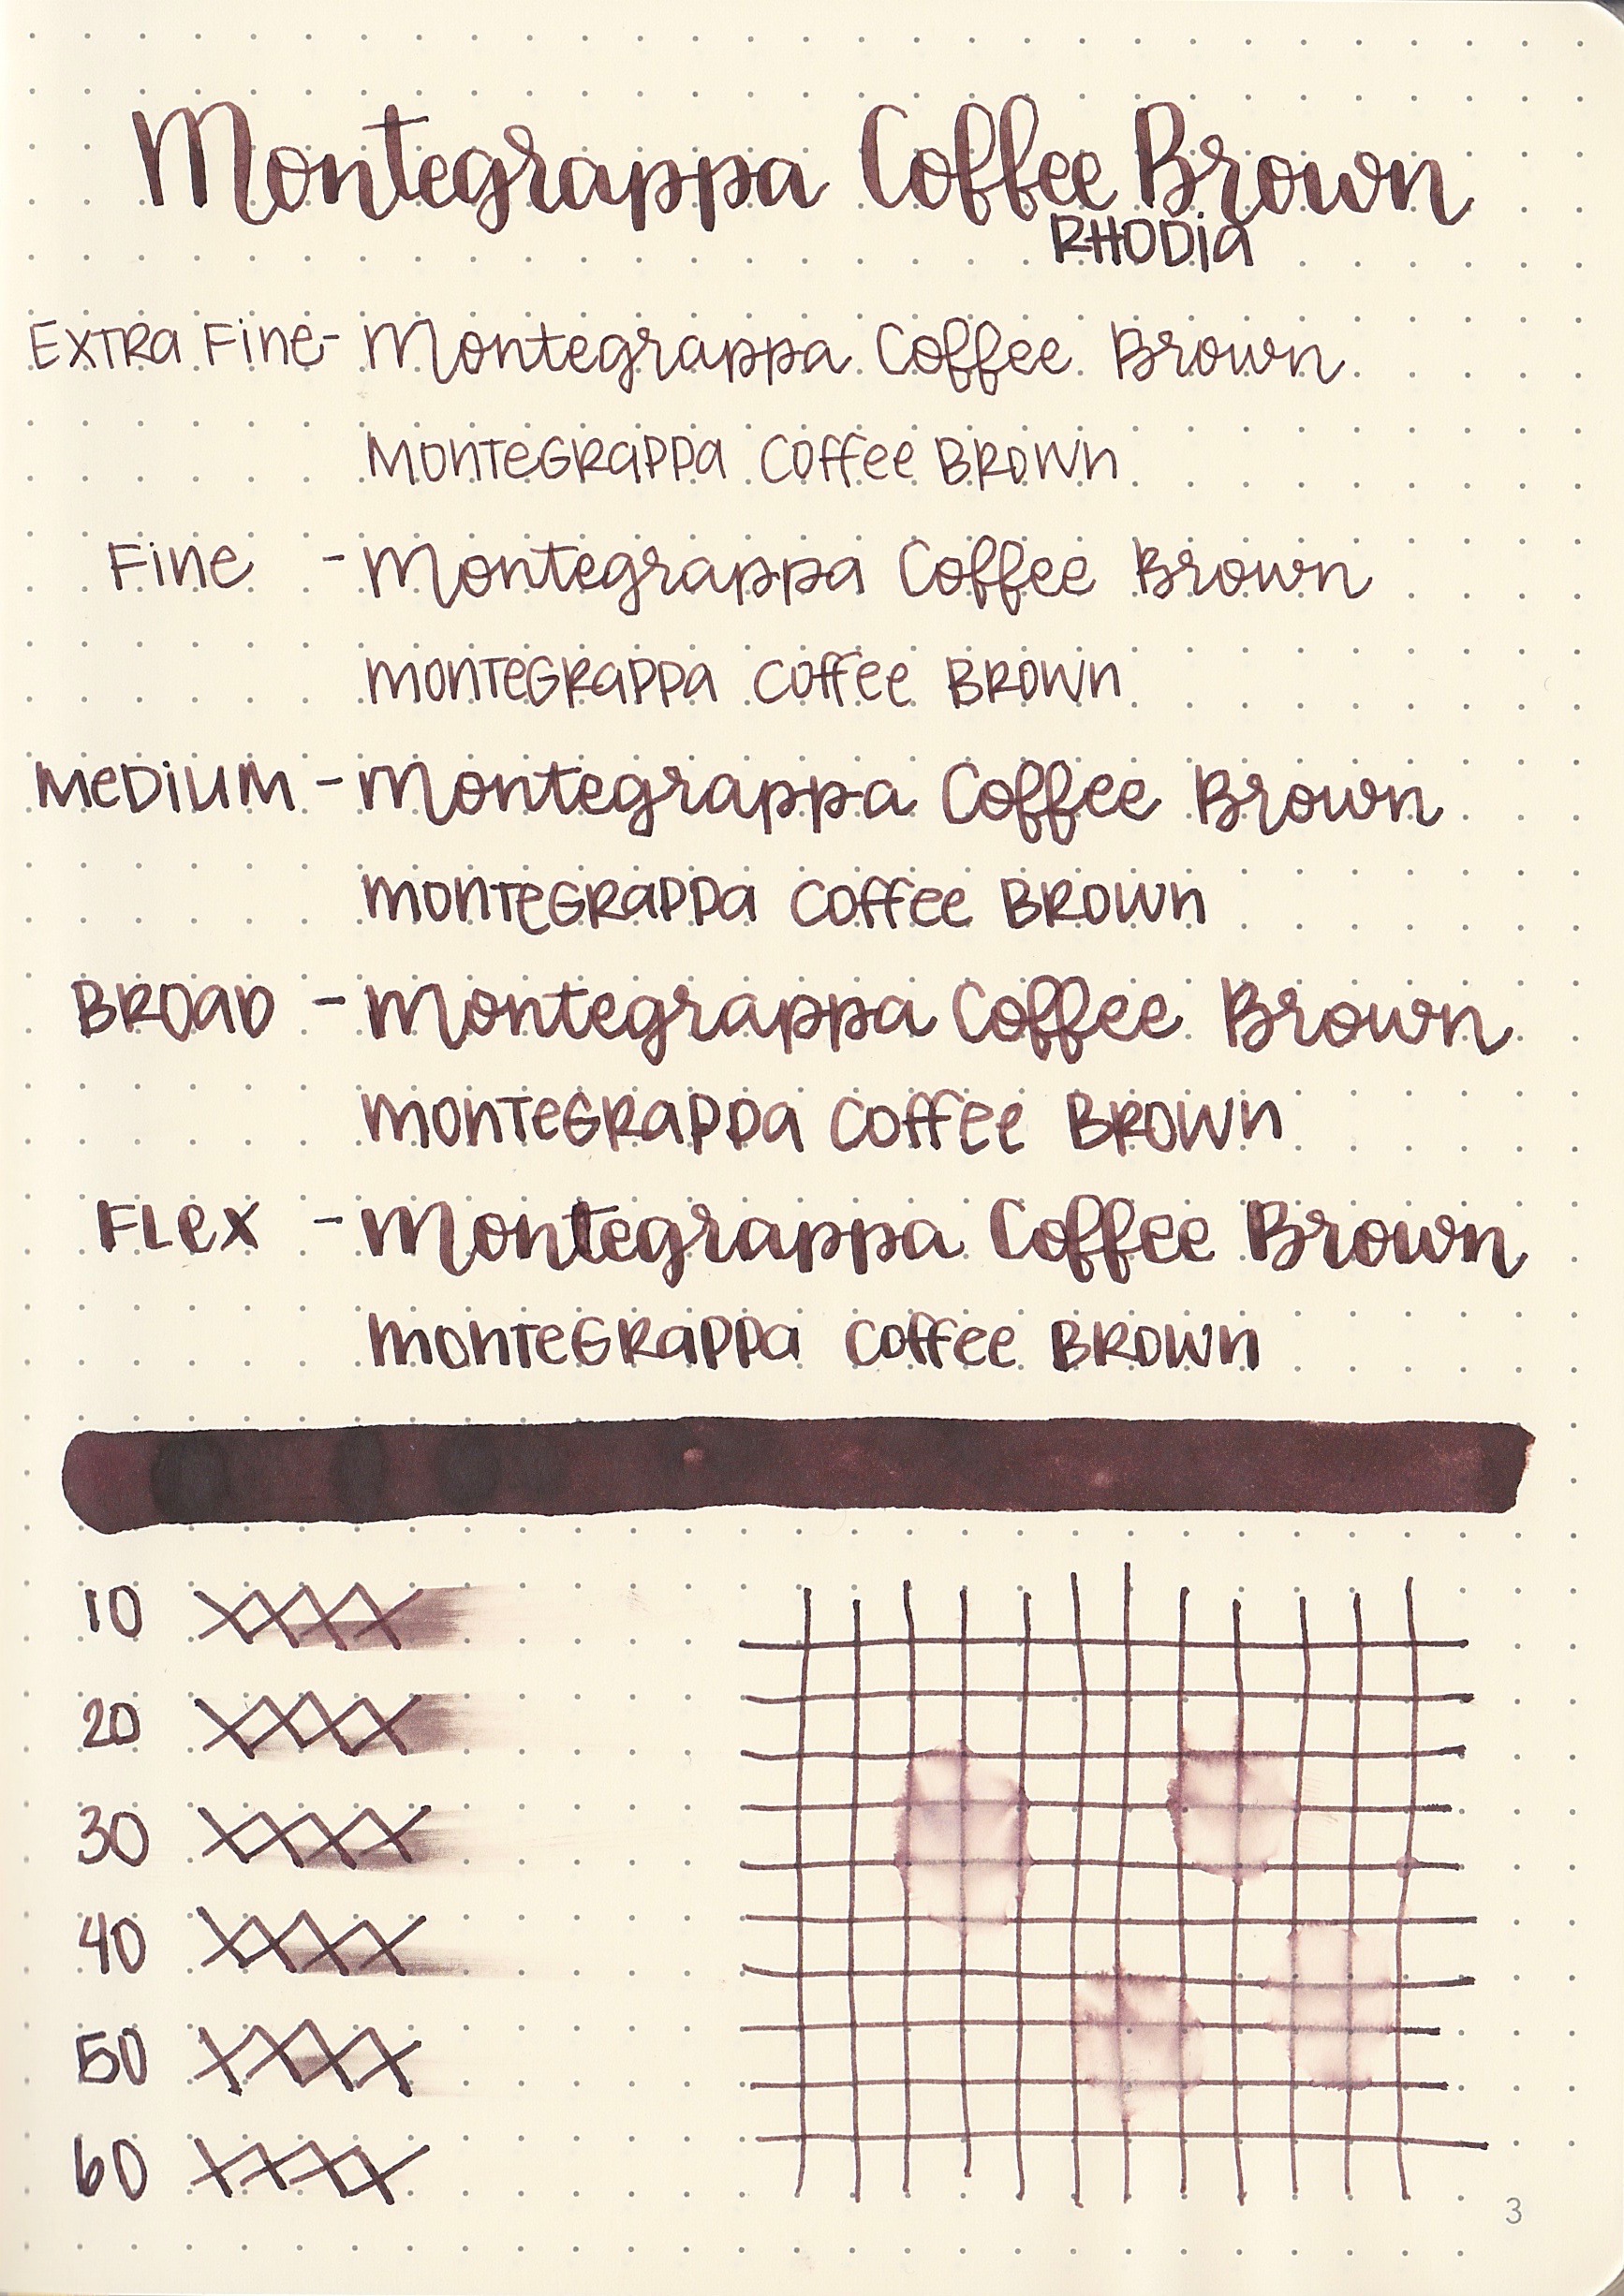 Montegrappa Coffee Brown
RHODiA
EXTRA Fine - Montegrappa Coffee Brown
MONTeGRAPPA Coffee BROWN
Fine - Montegrappa Coffee Brown
MONTeGRAPPA Coffee BROWN
MeDiUM - Montegrappa Coffee Brown
MONTeGRAPPA Coffee BROWN
BROAD - Montegrappa Coffee Brown
MONTeGRAPPA Coffee BROWN
FLeX - Montegrappa Coffee Brown
MONTeGRAPPA Coffee BROWN
10
20
30
40
50
60
3